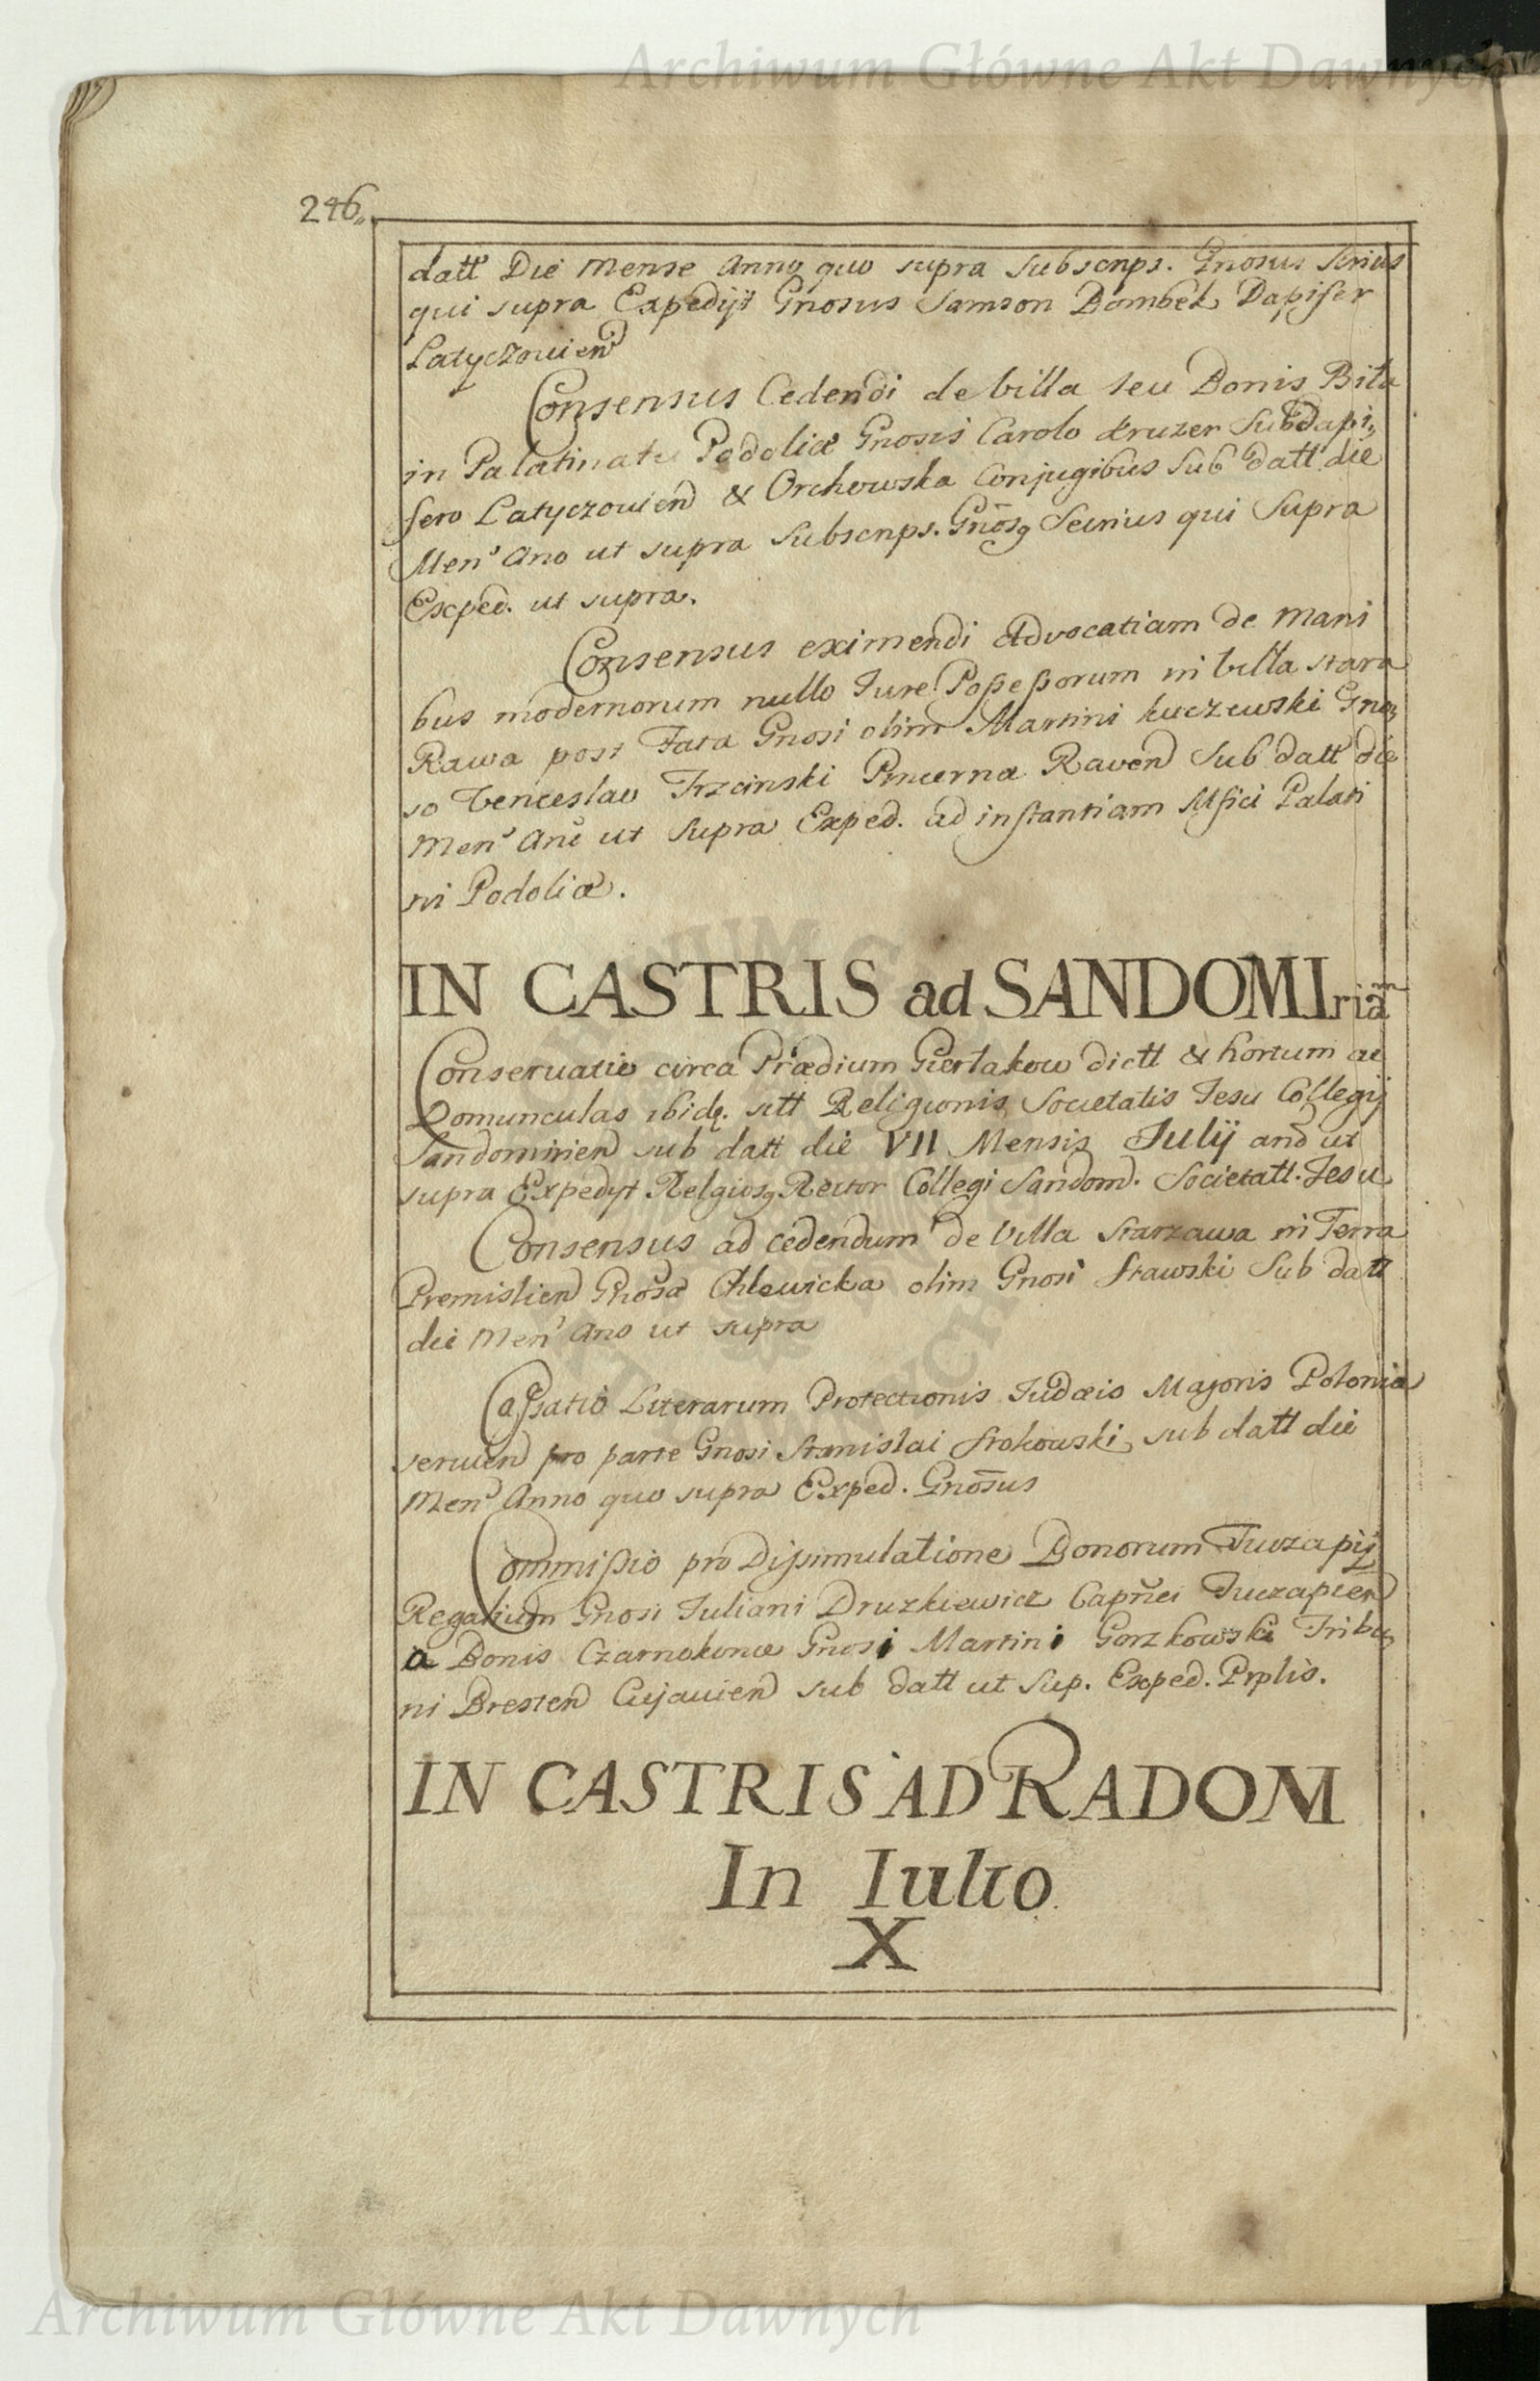 Archiwum Główne Akt Dawnych
246,,
datt Die Mense Anno quo supra Subscrips. Gnosus
qui supra Expedijt Gnosus Samson Bombek Dapifer
Latyczovien
Consensus Cedendi de Villa seu Bonis Bila
in Palatinatu Podoliæ Gnosis Carolo Kruzer Subdapi,,
fero Latyczovien & Orchowska Conjugibus Sub datt die
Men' Ano ut supra Subscrips. Gnosq Secrius qui Supra
Exped. ut supra.
Consensus eximendi Advocatiam de Mani
bus modernorum nullo Jure Possessorum in Villa Stara
Rawa post Fata Gnosi olim Martini Kuczewski Gno,,
so Venceslao Trzcinski Pincernæ Raven Sub datt die
Men' Ano ut Supra Exped. ad instantiam Mfici Palati
ni Podoliæ.
IN CASTRIS ad SANDOMIriam
Conservatio circa Prædium Gierlakow dictt & hortum ac
Domunculas ibidę. sitt Religionis Societatis Jesu Collegij
Sandomirien sub datt die VII Mensis Julij ano ut
supra Expedyt Relgiosq Rector Collegi Sandom. Societatt. Jesu
Consensus ad cedendum de Villa Starzawa in Terra
Premislien Gnosæ Chlewicka olim Gnosi Stawski Sub datt
die Men' Ano ut supra
Cassatio Literarum Protectionis Judæis Majoris Polonia
servien pro parte Gnosi Stanislai Stokowski sub datt die
Men' Anno quo supra Exped. Gnosus
Commissio pro Dissimulatione Bonorum Tuczapij
Regalium Gnosi Juliani Druzkiewicz Capnei Tuczapien
a Bonis Czarnokonce Gnosi Martini Gorzkowski Tribu,,
ni Bresten Cujavien sub datt ut Sup. Exped. Prplis.
IN CASTRIS AD RADOM
In Iulio
X
Archiwum Główne Akt Dawnych